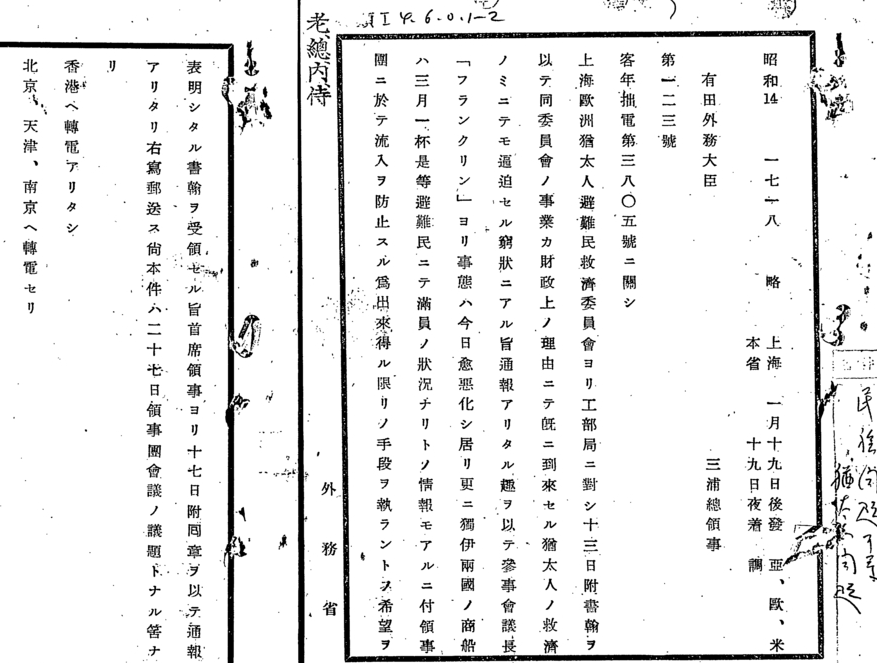 I 4.6.0.1-2
昭和14 一七一八 略 上海 一月十九日後發 亞、歐、米
本省 十九日夜着
有田外務大臣 三浦總領事
第一二三號
客年拙電第三八〇五號ニ關シ
上海歐洲猶太人避難民救濟委員會ヨリ工部局ニ對シ十三日附書翰ヲ
以テ同委員會ノ事業カ財政上ノ理由ニテ旣ニ到來セル猶太人ノ救濟
ノミニテモ逼迫セル窮狀ニアル旨通報アリタル趣ヲ以テ參事會議長
「フランクリン」ヨリ事態ハ今日愈惡化シ居リ更ニ獨伊兩國ノ商船
ハ三月一杯是等避難民ニテ滿員ノ狀況ナリトノ情報モアルニ付領事
團ニ於テ流入ヲ防止スル爲出來得ル限リノ手段ヲ執ラントノ希望ヲ
外務省
表明シタル書翰ヲ受領セル旨首席領事ヨリ十七日附同章ヲ以テ通報
アリタリ右寫郵送ス尙本件ハ二十七日領事團會議ノ議題トナル筈ナ
リ
香港ヘ轉電アリタシ
北京、天津、南京ヘ轉電セリ